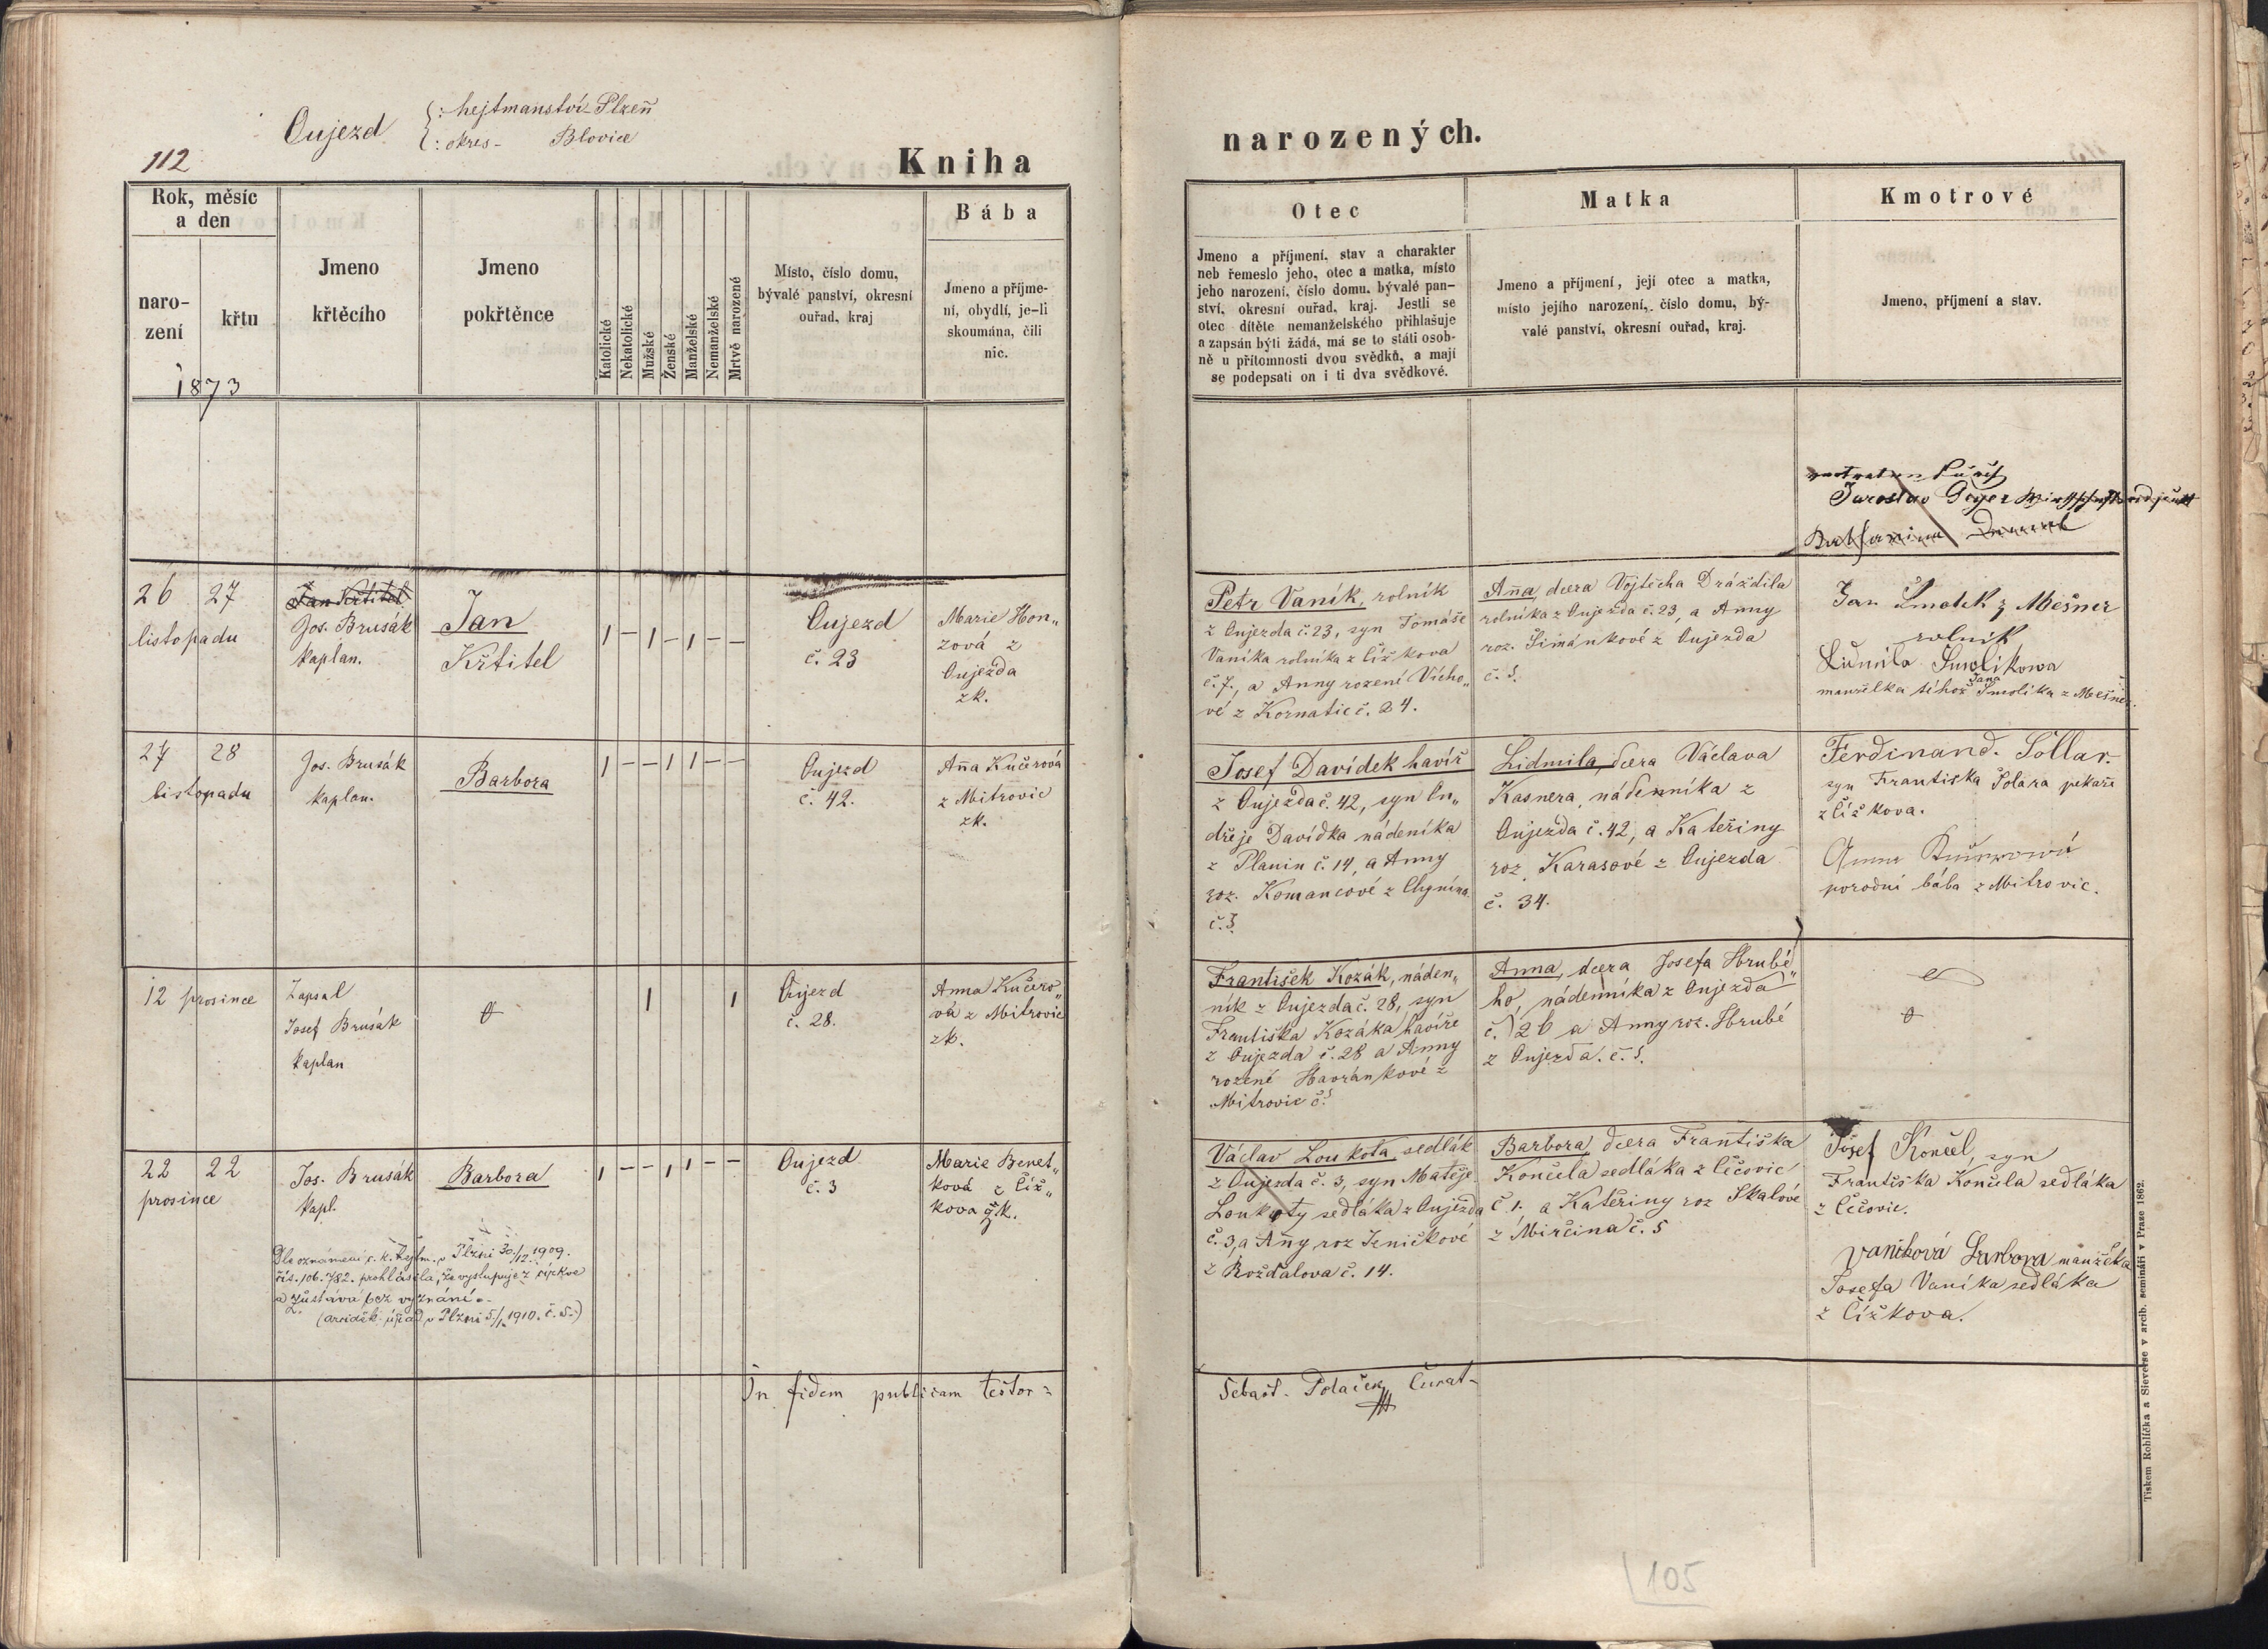 Oujezd
{: hejtmanství - Plzeň
{: okres - Blovice
112
Kniha
Rok, měsíc
a den
naro-
zení
křtu
1873
Jmeno
křtěcího
Jmeno
pokřtěnce
Katolické
Nekatolické
Mužské
Ženské
Manželské
Nemanželské
Mrtvě narozené
Místo, číslo domu,
bývalé panství, okresní
ouřad, kraj
Bába
Jmeno a příjme-
ní, obydlí, je-li
skoumána, čili
nic.
26 27
listopadu
Jan Křtitel
Jos. Brusák
kaplan.
Jan
Křtitel
1 – 1 – 1 – –
Oujezd
č. 23
Marie Hon„
zová z
Oujezda
zk.
27 28
listopadu
Jos. Brusák
kaplan.
Barbora
1 – – 1 1 – –
Oujezd
č. 42.
Aña Kučerová
z Mitrovic
zk.
12 prosince
Zapsal
Josef Brusák
kaplan
1 1
Oujezd
č. 28.
Anna Kučero„
vá z Mitrovic
zk.
22 22
prosince
Jos. Brusák
kapl.
Barbora
1 – – 1 1 – –
Oujezd
č. 3
Marie Benet„
ková z Číž„
kova zk.
Dle oznámení c. k. hejtm. v Plzni 30/12 1909.
čís. 106.782. prohlásila, že vystupuje z církve
a zůstává bez vyznání.
(arciděk. úřad v Plzni 5/1 1910. č. 5.)
In fidem publicam testor:
narozených.
Otec
Jmeno a příjmení, stav a charakter
neb řemeslo jeho, otec a matka, místo
jeho narození, číslo domu, bývalé pan-
ství, okresní ouřad, kraj. Jestli se
otec dítěte nemanželského přihlašuje
a zapsán býti žádá, má se to státi osob-
ně u přítomnosti dvou svědků, a mají
se podepsati on i ti dva svědkové.
Matka
Jmeno a příjmení, její otec a matka,
místo jejího narození, číslo domu, bý-
valé panství, okresní ouřad, kraj.
Kmotrové
Jmeno, příjmení a stav.
Jaroslav Geyer
Petr Vaník, rolník
z Oujezda č. 23, syn Tomáše
Vaníka rolníka z Čížkova
č. 7., a Anny rozené Vícho„
vé z Kornatic č. 24.
Aña, dcera Vojtěcha Dráždila
rolníka z Oujezda č. 23, a Anny
roz. Šimánkové z Oujezda
č. 5.
Jan Smolik z Mešner
rolník
Lidmila Smolikowa
manželka téhož Jana Smolíka z Mešner.
Josef Davídek havíř
z Oujezda č. 42, syn On„
dřeje Davídka nádeníka
z Planin č. 14, a Anny
roz. Komancové z Chynína
č. 3.
Lidmila, dcera Václava
Kasnera, nádenníka z
Oujezda č. 42, a Kateřiny
roz. Karasové z Oujezda
č. 34.
Ferdinand. Sollar.
syn Františka Solara pekaře
z Čížkova.
Anna Kučerowá
porodní bába z Mitrovic.
František Kozák, náden„
ník z Oujezda č. 28, syn
Františka Kozáka havíře
z Oujezda č. 28 a Anny
rozené Havránkové z
Mitrovic č.
Anna, dcera Josefa Hrubé„
ho, nádenníka z Oujezda
č. 26 a Anny roz. Hrubé
z Oujezda. č. 5.
Václav Loukota sedlák
z Oujezda č. 3, syn Matěje
Loukoty sedláka z Oujezda
č. 3, a Aňy roz Jeničkové
z Rožďalova č. 14.
Barbora, dcera Františka
Končela sedláka z Cěčovic
č. 1. a Kateřiny roz Skalové
z Mirčina č. 5
Josef Končel, syn
Františka Končela sedláka
z Cěčovic.
Vaníková Barbora manželka
Josefa Vaníka sedláka
z Čížkova.
Sebast. Polaček Curat.
105
Tiskem Rohlíčka a Sieverse v arcib. semináři v Praze 1862.